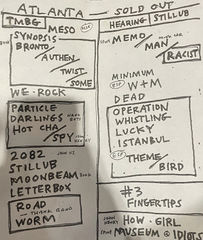 ATLANTA
TMBG
MESO
SYNOPSIS
BRONTO
AUTHEN
TWIST
SOME
WE·ROCK
PARTICLE
DARLINGS
HOT CHA
SPY
2082
STILLUB
MOONBEAM
LETTERBOX
ROAD
THANK BAND
WORM
SOLD OUT
HEARING
STILLUB
MEMO
MAN
RACIST
MINIMUM
W+M
DEAD
OPERATION
WHISTLING
LUCKY
ISTANBUL
THEME
BIRD
#3
FINGERTIPS
HOW·GIRL
MUSEUM @ IDIOTS